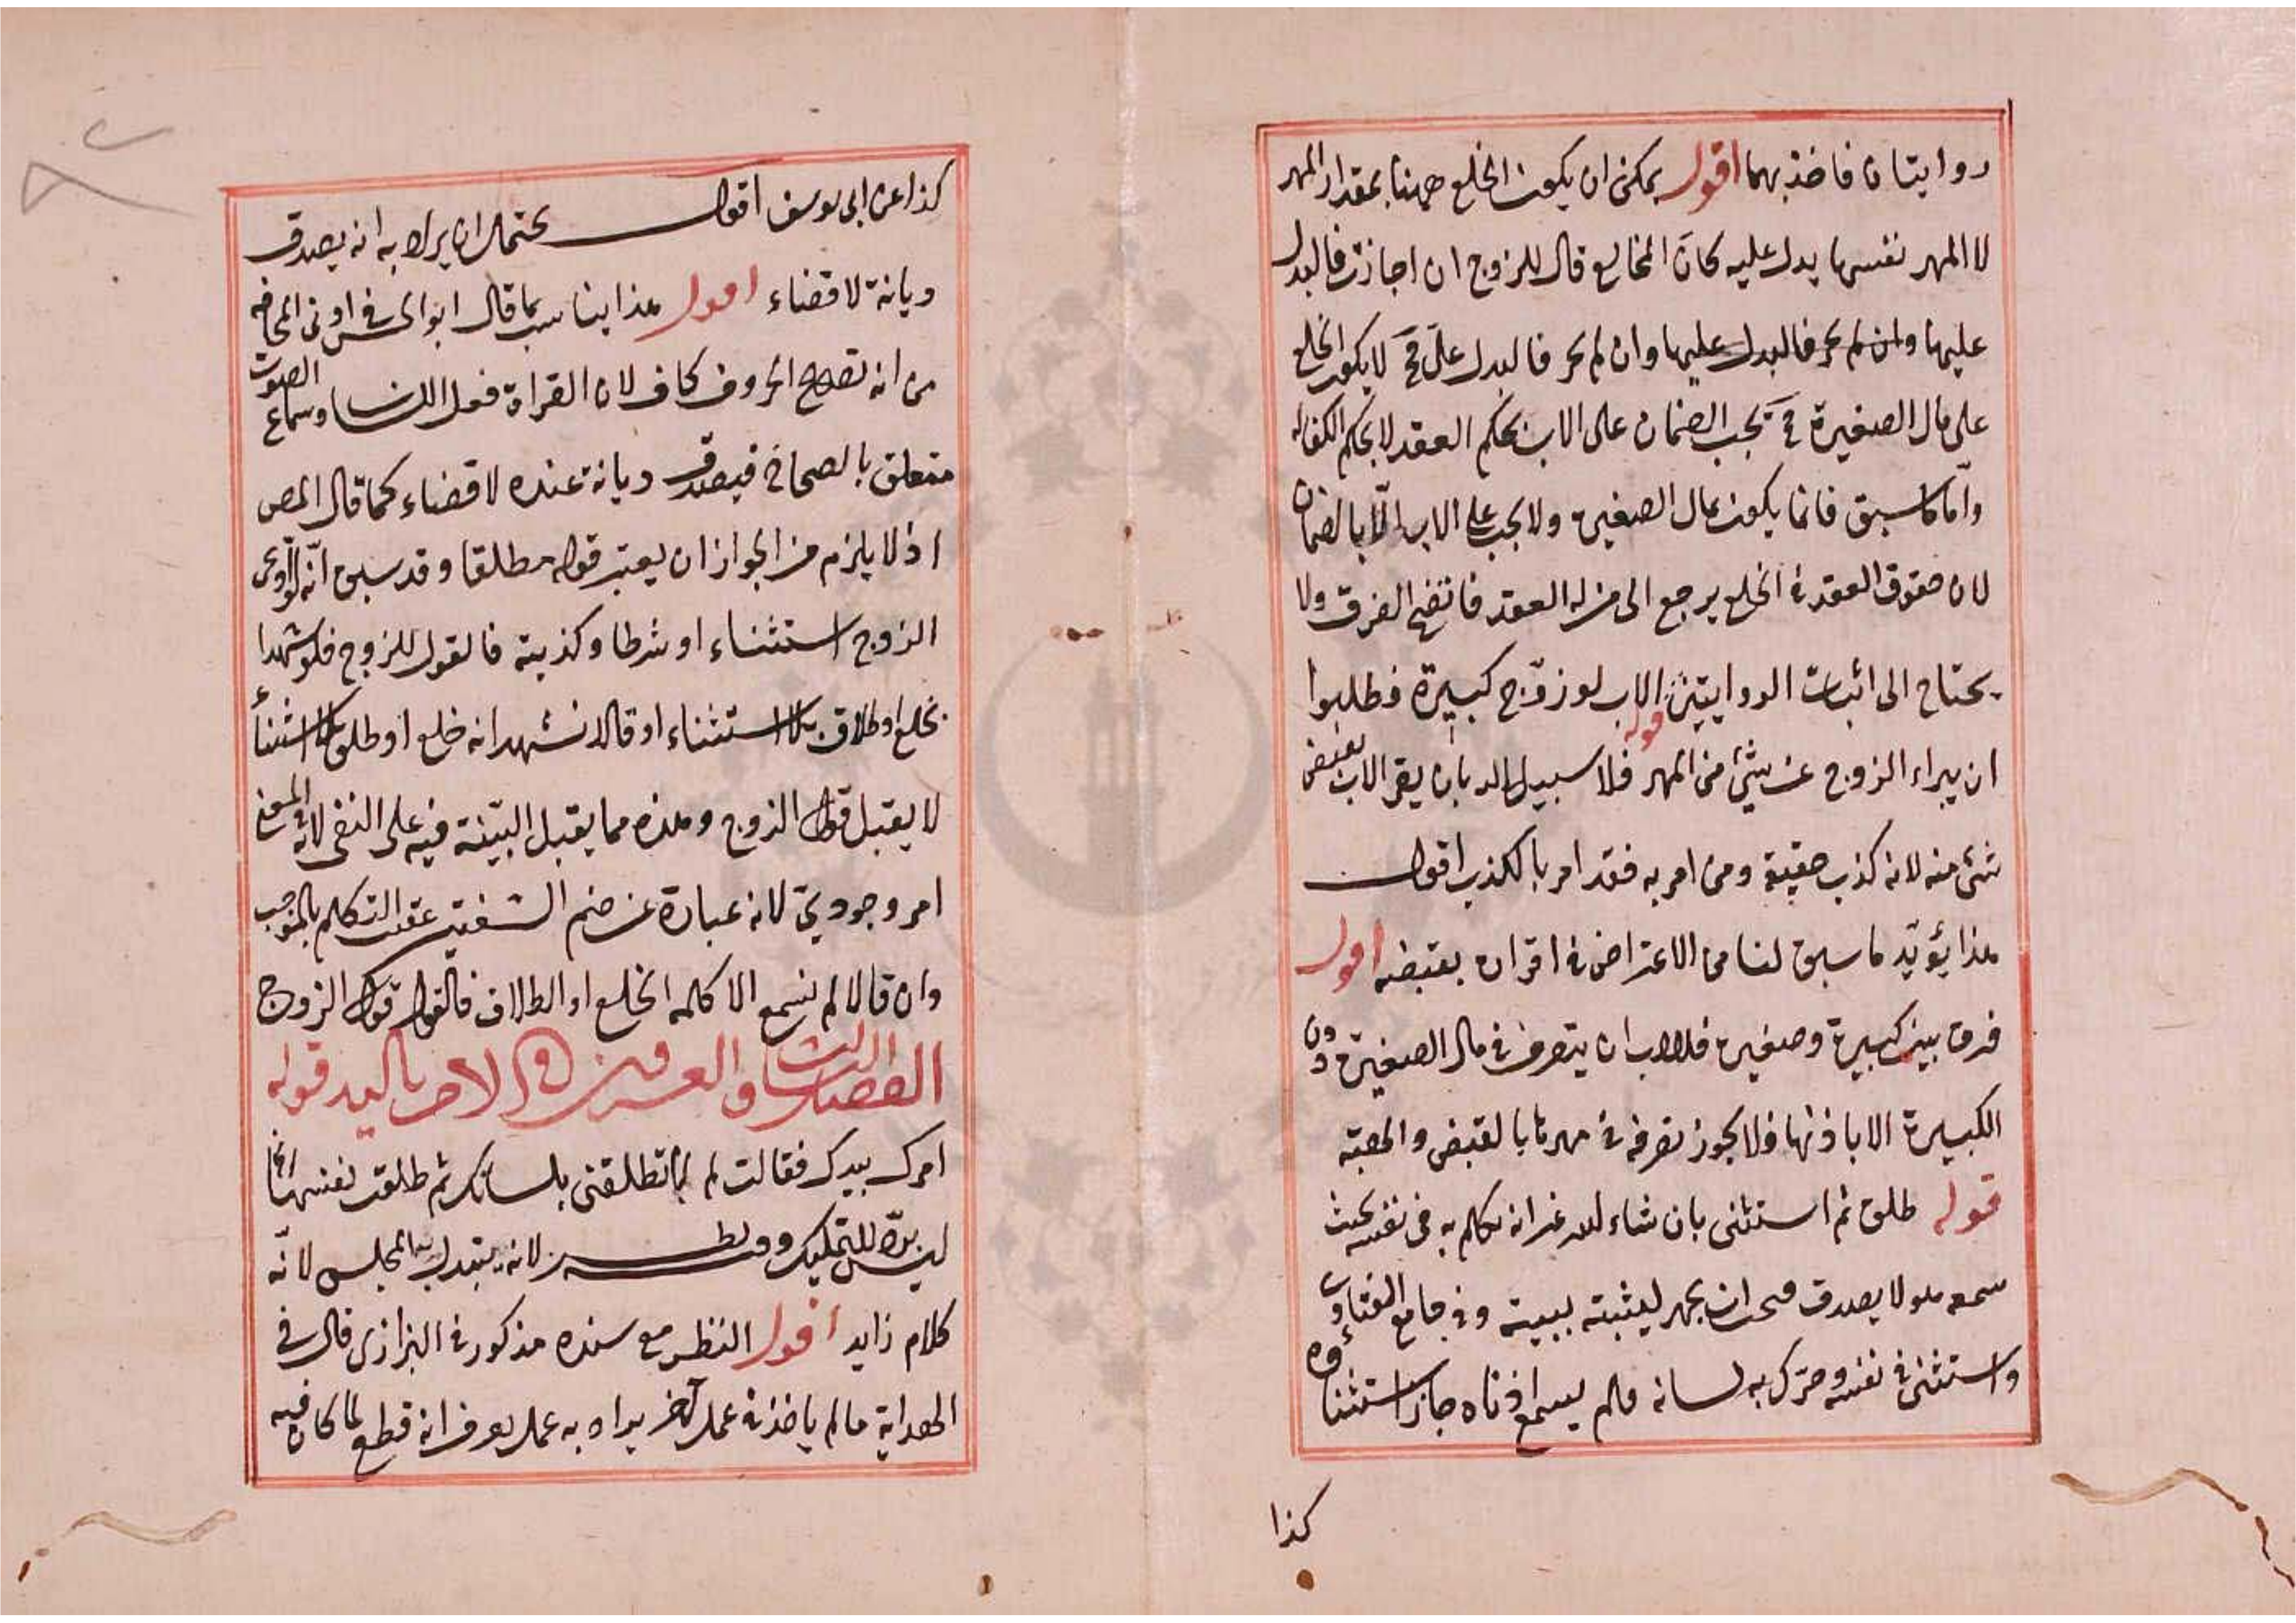 روايتان فاخذ بهما اقول يمكن ان يكون الخلع ههنا بمقدار المهر
لا المهر نفسها يدل عليه كان المخالع قال للزوج ان اجازت فالبدل
عليها وان لم يجز فالبدل عليها وان لم يجز فالبدل على فح لا يكون الخلع
على مال الصغيرة فح يجب الضمان على الاب بحكم العقد لا بحكم الكفالة
واما ما سبق فانما يكون بمال الصغيرة ولا يجب على الاب الا بالضمان
لان حقوق العقد في الخلع يرجع الى من له العقد فاتضح الفرق ولا
يحتاج الى اثبات الروايتين قوله الاب لو زوج كبيرة وطلبوا
ان يبراء الزوج عن شئ من المهر فلا سبيل اليه بان يقر الاب بقبض
شئ منه لانه كذب حقيقة ومن امر به فقد امر بالكذب اقول
هذا يؤيد ما سبق لنا من الاعتراض في اقراره بقبضه اقول
فرق بين كبيرة وصغيرة فللاب ان يتصرف في مال الصغيرة دون
الكبيرة الا باذنها فلا يجوز تصرفه في مهرها بالقبض والهبة
قوله طلق ثم استثنى بان شاء الله غير انه تكلم به في نفسه بحيث
سمعه هو لا يصدق ان يجهر ليثبته ببينة وفي جامع الفتاوى
واستثنى في نفسه وحرك به لسانه فلم يسمع اذناه جاز استثناؤه
كذا
كذا عن ابى يوسف اقول يحتمل ان يراد به انه يصدق
ديانة لا قضاء اقول هذا يناسب ما قال ابو الحسن في ادنى المخافة
من انه تصحيح الحروف كاف لان القراة فعل اللسان وسماع الصوت
متعلق بالصماخ فيصدق ديانة عنده لا قضاء كما قال المص
اذ لا يلزم من الجواز ان يعتبر قوله مطلقا وقد سبق انه لو ادعى
الزوج استثناء او شرطا وكذبته فالقول للزوج فلو شهدا
بخلع او طلاق بلا استثناء او قالا نشهد انه خلع او طلق بلا استثناء
لا يقبل قول الزوج وهذه مما يقبل البينة فيه على النفى لانه في المعنى
امر وجودي لانه عبارة عن ضم الشفتين عقب التكلم بالموجب
وان قالا لم نسمع الا كلمة الخلع او الطلاق فالقول قول الزوج
الفصل الثالث والعشرون في الامر باليد قوله
امرك بيدك فقالت لم لا تطلقنى بلسانك ثم طلقت نفسها لانه
ليس بردّ للتمليك وفيه نظر لانه يتبدل به المجلس لانه
كلام زايد اقول النظر مع سنده مذكور في البزازى قال في
الهداية ما لم ياخذ في عمل آخر يراد به عمل يعرف انه قطع لما كان فيه